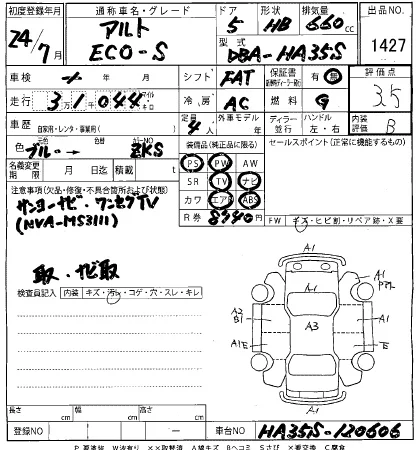 初度登録年月 通称車名・グレード ドア 形状 排気量 出品NO.
24/7月 アルト ECO-S 5 HB 660cc 1427
型式 DBA-HA35S
車検 年 月 シフト FAT 保証書 有 無 評価点
走行 31044 万 千 マイル キロ 冷房 AC 燃料 G 3.5
車歴 自家用・レンタ・事業用( ) 定員 4人 外車モデル 年 ディーラー 並行 ハンドル 左・右 内装評価 B
色 ブルー 元色 色替 カラーNO. ZKS 装備品(純正品に限る) セールスポイント(正常に機能するもの)
名義変更期限 月 日迄 積載量 t PS PW AW
注意事項(欠品・修復・不具合箇所および状態) SR TV ナビ
サンヨーナビ・ワンセグTV カワ エアB ABS
(NVA-MS3111) R券 8940円 FW キズ・ヒビ割・リペア跡・X要
取・ナビ取
検査員記入 内装 キズ・汚レ・コゲ・穴・スレ・キレ
A1
A1
A2 B1 A3 A1
A1 E E
A1
長さ cm 幅 cm 高さ cm
登録NO 車台NO HA35S-120606
P 要塗装 W波有り XX取替済 A線キズ Bヘコミ Sさび X要交換 C腐食